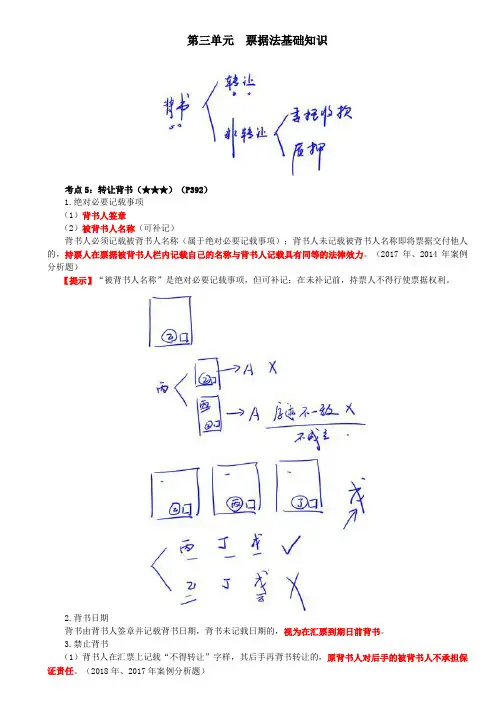 第三单元 票据法基础知识
背书
转让
非转让
委托收款
质押
考点5：转让背书（★★★）（P392）
1.绝对必要记载事项
（1）背书人签章
（2）被背书人名称（可补记）
背书人必须记载被背书人名称（属于绝对必要记载事项）；背书人未记载被背书人名称即将票据交付他人
的，持票人在票据被背书人栏内记载自己的名称与背书人记载具有同等的法律效力。（2017年、2014年案例
分析题）
【提示】“被背书人名称”是绝对必要记载事项，但可补记；在未补记前，持票人不得行使票据权利。
丙
→A X
→A 序迹不一致 X
丙 丁 戊 ✓
丁 戊 X
2.背书日期
背书由背书人签章并记载背书日期，背书未记载日期的，视为在汇票到期日前背书。
3.禁止背书
（1）背书人在汇票上记载“不得转让”字样，其后手再背书转让的，原背书人对后手的被背书人不承担保
证责任。（2018年、2017年案例分析题）